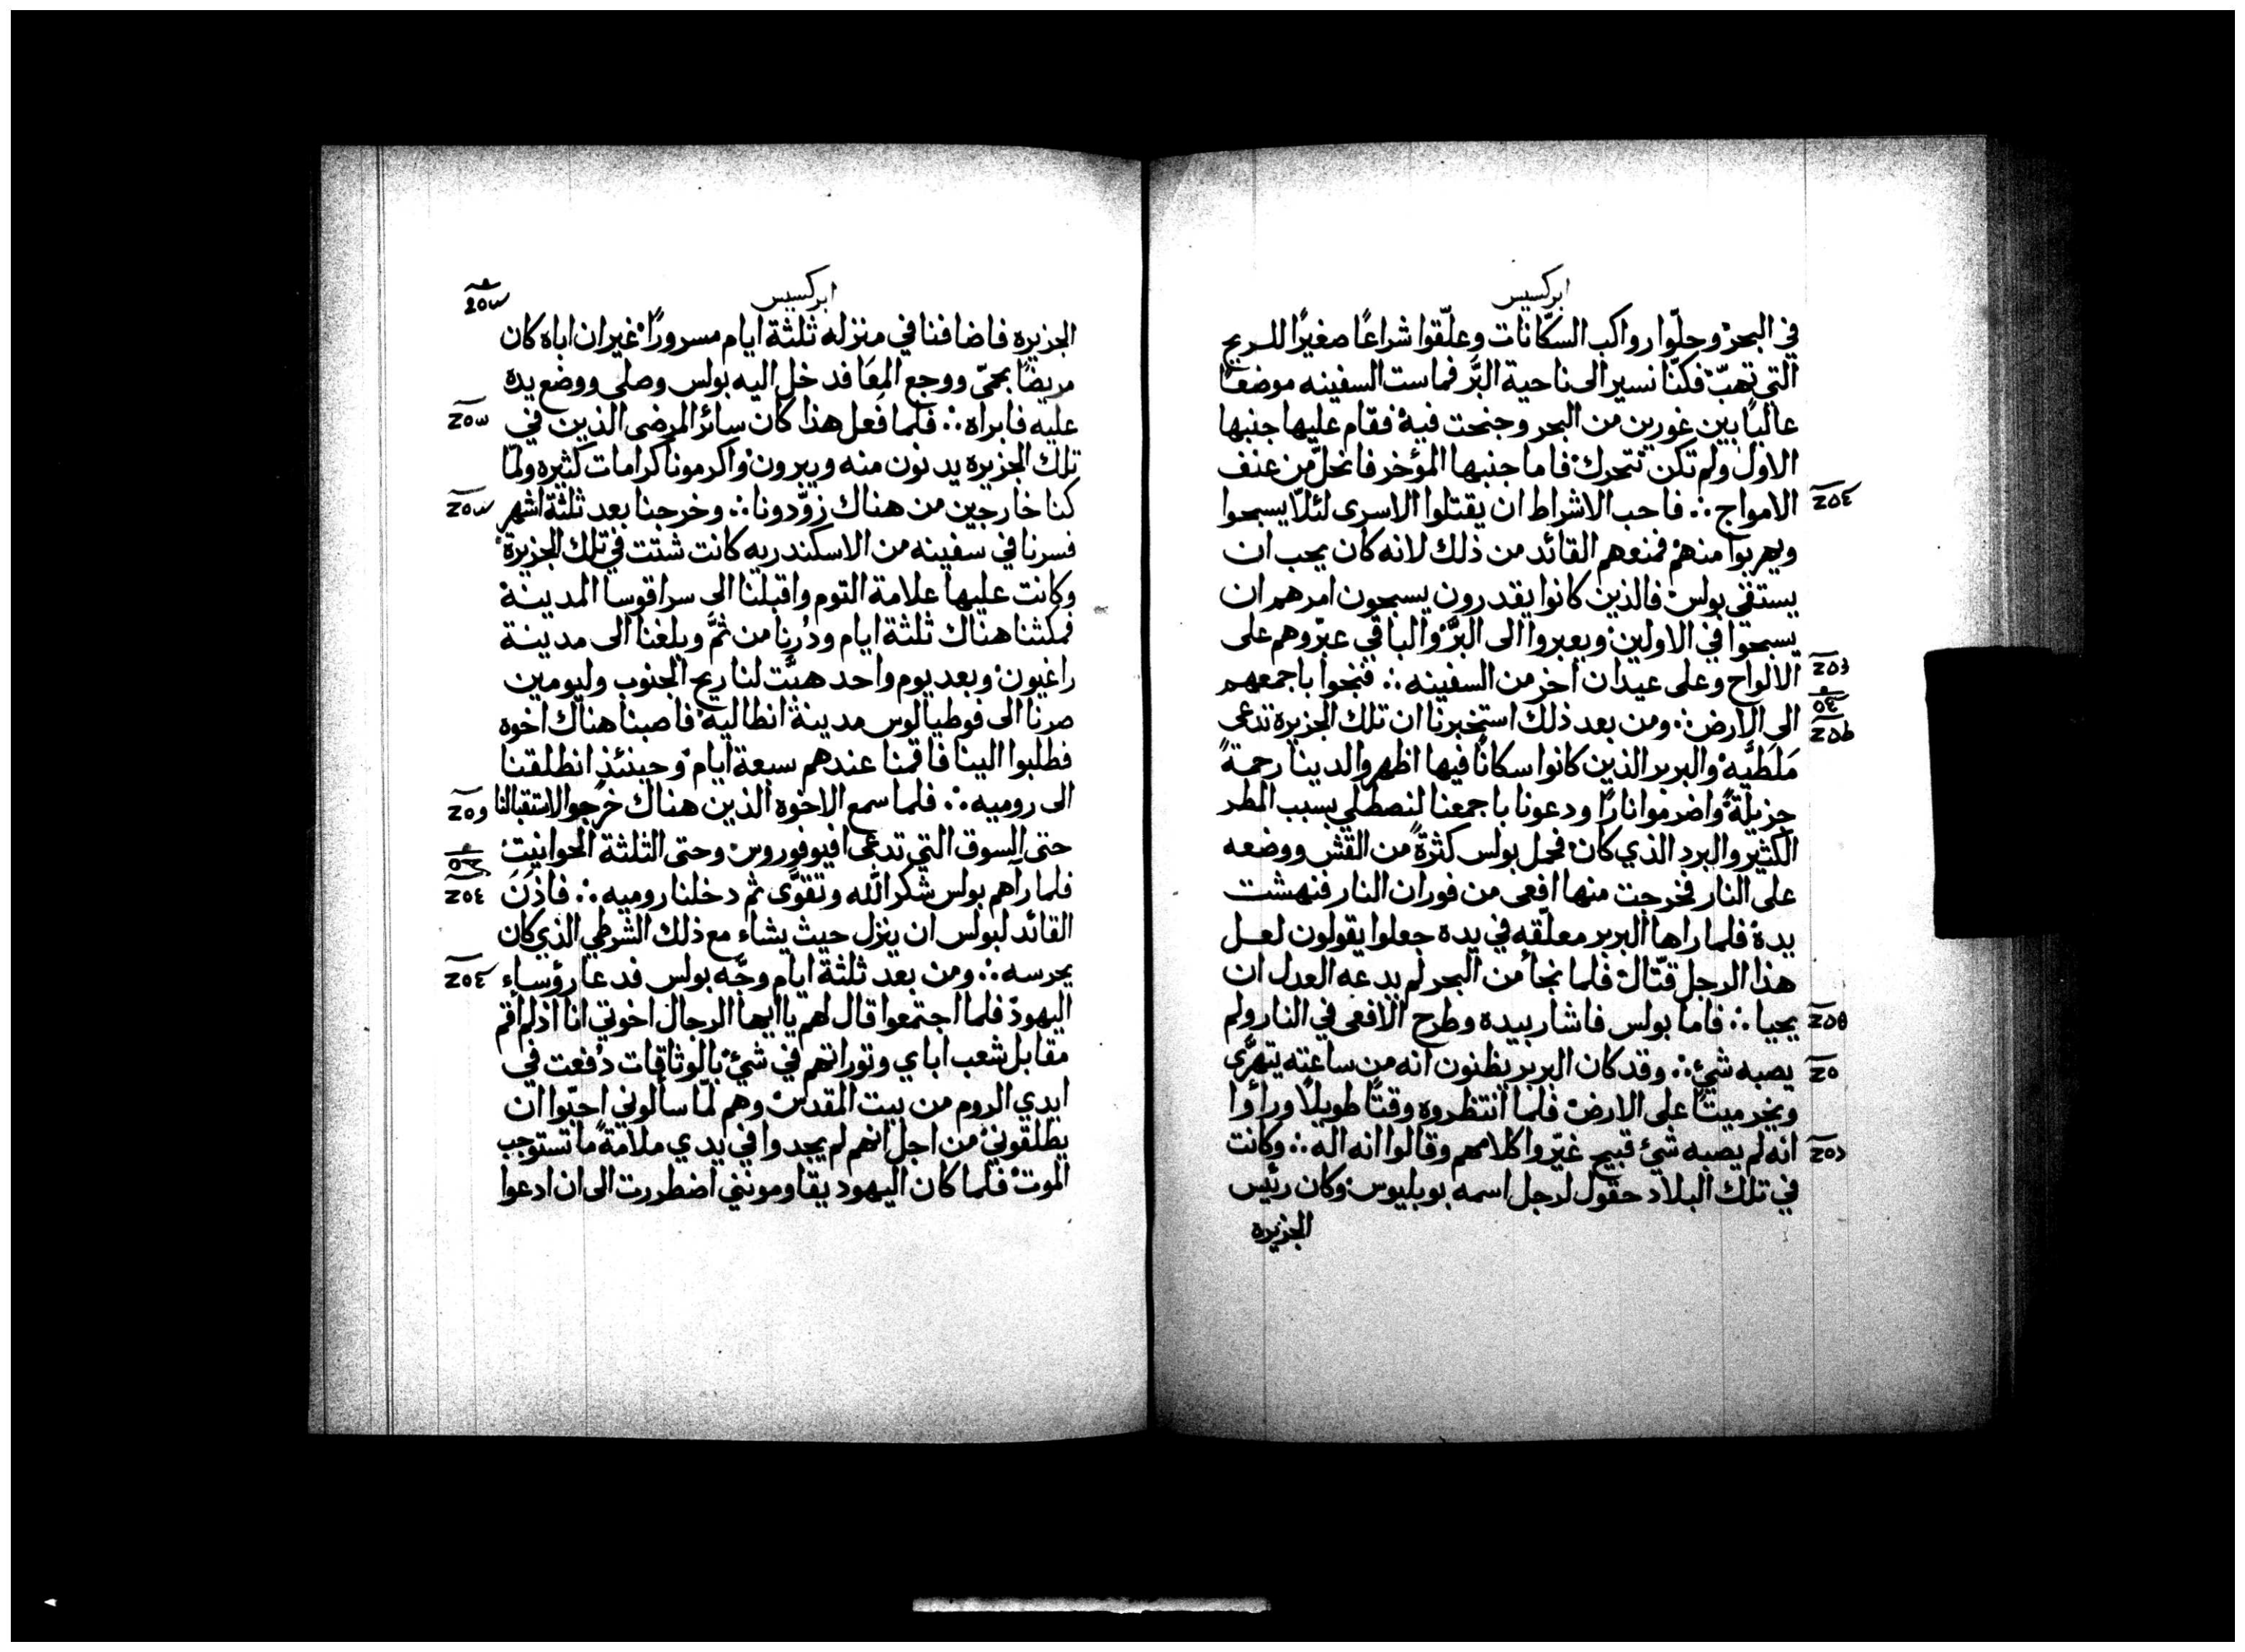 ابركسيس
في البحر وحلّوا رواكب السكّانات وعلّقوا شراعًا صغيرًا للريح
التي تهبّ فكنّا نسير الى ناحية البرّ فماست السفينه موضعًا
عاليًا بين غورين من البحر وجنحت فيه فقام عليها جنبها
الاول ولم تكن تتحرك فاما جنبها المؤخر فانحلّ من عنف
الامواج ∴ فاحب الاشراط ان يقتلوا الاسرى لئلّا يسبحوا
ويهربوا منهم فمنعهم القائد من ذلك لانه كان يحب ان
يستقي بولس فالذين كانوا يقدرون يسبحون امرهم ان
يسبحوا في الاولين ويعبروا الى البرّ والباقي عبّروهم على
الالواح وعلى عيدان اخر من السفينه ∴ فنجوا باجمعهم
الى الارض ∴ ومن بعد ذلك استخبرنا ان تلك الجزيرة تدعى
مَلَطيَه والبربر الذين كانوا سكانًا فيها اظهروا لدينا رحمةً
جزيلةً واضرموا نارًا ودعونا باجمعنا لنصطلي بسبب المطر
الكثير والبرد الذي كان فحمل بولس كثرةً من القش ووضعه
على النار فخرجت منها افعى من فوران النار فنهشت
يده فلما راها البربر معلّقه في يده جعلوا يقولون لعل
هذا الرجل قتّال فلما نجا من البحر لم يدعه العدل ان
يحيا ∴ فاما بولس فاشار بيده وطرح الافعى في النار ولم
يصبه شيء ∴ وقد كان البربر يظنون انه من ساعته يتهرّى
ويخر ميتًا على الارض فلما انتظروه وقتًا طويلًا وراؤا
انه لم يصبه شيء قبيح غيّروا كلامهم وقالوا انه اله ∴ وكانت
في تلك البلاد حقول لرجل اسمه بوبليوس وكان رئيس
الجزيره
ابركسيس
الجزيره فاضافنا في منزله ثلثة ايام مسرورًا غير ان اباه كان
مريضًا بحمّى ووجع المِعَا فدخل اليه بولس وصلى ووضع يده
عليه فابراه ∴ فلما فعل هذا كان سائر المرضى الذين في
تلك الجزيره يدنون منه ويبرون واكرمونا كرامات كثيره ولمّا
كنا خارجين من هناك زوّدونا ∴ وخرجنا بعد ثلثة اشهر
فسرنا في سفينه من الاسكندريه كانت شتت في تلك الجزيرة
وكانت عليها علامة التوم واقبلنا الى سراقوسا المدينة
فمكثنا هناك ثلثة ايام ودُرنا من ثَمَّ وبلغنا الى مدينة
راغيون وبعد يوم واحد هبّت لنا ريح الجنوب وليومين
صرنا الى فوطيالوس مدينة انطاليه فاصبنا هناك اخوه
فطلبوا الينا فاقمنا عندهم سبعة ايام وحينئذٍ انطلقنا
الى روميه ∴ فلما سمع الاخوه الذين هناك خرجوا لاستقبالنا
حتى السوق التي تدعى افيوفوروس وحتى الثلثة الحوانيت
فلما رآهم بولس شكر الله وتقوّى ثم دخلنا روميه ∴ فاذن
القائد لبولس ان ينزل حيث يشاء مع ذلك الشرطي الذي كان
يحرسه ∴ ومن بعد ثلثة ايام وجّه بولس فدعا رؤساء
اليهود فلما اجتمعوا قال لهم يا ايها الرجال اخوتي انا اذ لم اقم
مقابل شعب اباي وتوراتهم في شيء بالوثاقات دُفعت في
ايدي الروم من بيت المقدس وهم لمّا سألوني احبّوا ان
يطلقوني من اجل انهم لم يجدوا في يدي ملامةً ما تستوجب
الموت فلما كان اليهود يقاومونني اضطررت الى ان ادعوا